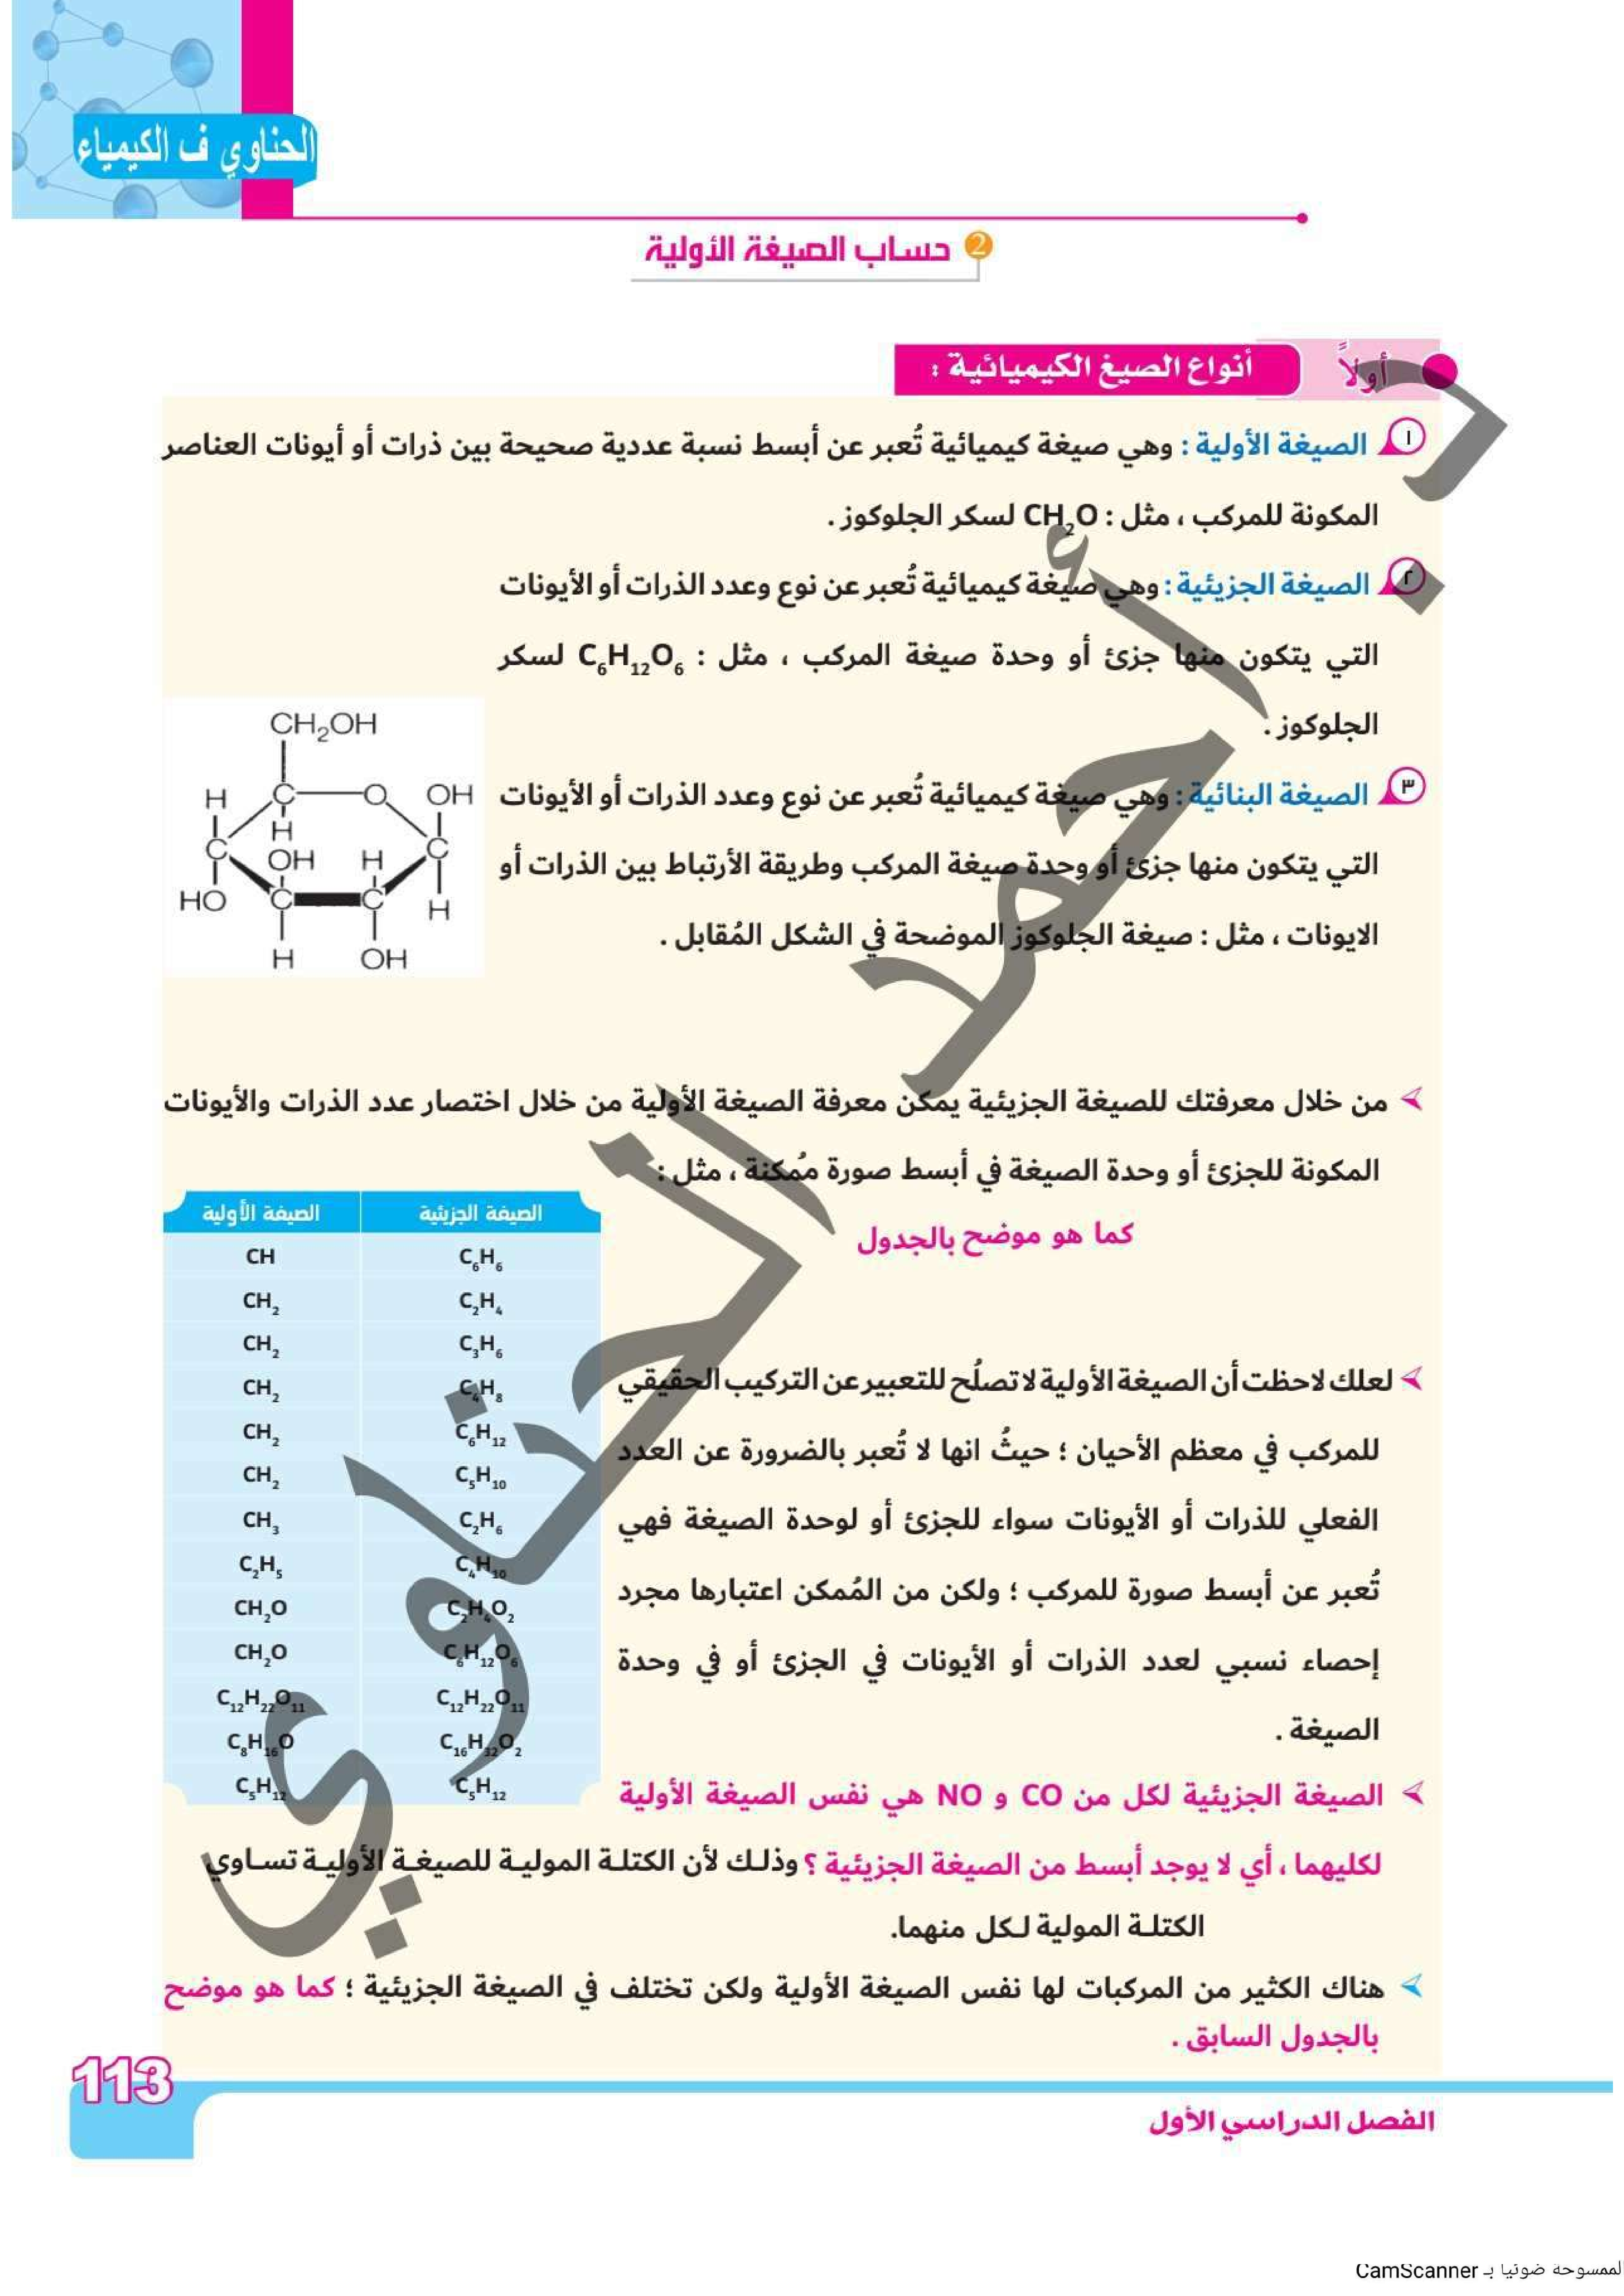 الحناوي ف الكيمياء
2 حساب الصيغة الأولية
أولاً أنواع الصيغ الكيميائية :
١ الصيغة الأولية : وهي صيغة كيميائية تُعبر عن أبسط نسبة عددية صحيحة بين ذرات أو أيونات العناصر
المكونة للمركب ، مثل : CH₂O لسكر الجلوكوز .
٢ الصيغة الجزيئية : وهي صيغة كيميائية تُعبر عن نوع وعدد الذرات أو الأيونات
التي يتكون منها جزئ أو وحدة صيغة المركب ، مثل : C₆H₁₂O₆ لسكر
الجلوكوز .
٣ الصيغة البنائية : وهي صيغة كيميائية تُعبر عن نوع وعدد الذرات أو الأيونات
التي يتكون منها جزئ أو وحدة صيغة المركب وطريقة الأرتباط بين الذرات أو
الايونات ، مثل : صيغة الجلوكوز الموضحة في الشكل المُقابل .
CH₂OH
H C O OH
H
C OH H C
HO C C H
H OH
من خلال معرفتك للصيغة الجزيئية يمكن معرفة الصيغة الأولية من خلال اختصار عدد الذرات والأيونات
المكونة للجزئ أو وحدة الصيغة في أبسط صورة مُمكنة ، مثل :
كما هو موضح بالجدول
الصيغة الجزيئية الصيغة الأولية
C₆H₆ CH
C₂H₄ CH₂
C₃H₆ CH₂
C₄H₈ CH₂
C₆H₁₂ CH₂
C₅H₁₀ CH₂
C₂H₆ CH₃
C₄H₁₀ C₂H₅
C₂H₄O₂ CH₂O
C₆H₁₂O₆ CH₂O
C₁₂H₂₂O₁₁ C₁₂H₂₂O₁₁
C₁₆H₃₂O₂ C₈H₁₆O
C₅H₁₂ C₅H₁₂
لعلك لاحظت أن الصيغة الأولية لا تصلُح للتعبير عن التركيب الحقيقي
للمركب في معظم الأحيان ؛ حيثُ انها لا تُعبر بالضرورة عن العدد
الفعلي للذرات أو الأيونات سواء للجزئ أو لوحدة الصيغة فهي
تُعبر عن أبسط صورة للمركب ؛ ولكن من المُمكن اعتبارها مجرد
إحصاء نسبي لعدد الذرات أو الأيونات في الجزئ أو في وحدة
الصيغة .
الصيغة الجزيئية لكل من CO و NO هي نفس الصيغة الأولية
لكليهما ، أي لا يوجد أبسط من الصيغة الجزيئية ؟ وذلك لأن الكتلة المولية للصيغة الأولية تساوي
الكتلة المولية لكل منهما.
هناك الكثير من المركبات لها نفس الصيغة الأولية ولكن تختلف في الصيغة الجزيئية ؛ كما هو موضح
بالجدول السابق .
د. أحمد الحناوي
113
الفصل الدراسي الأول
لممسوحة ضوئيا بـ CamScanner